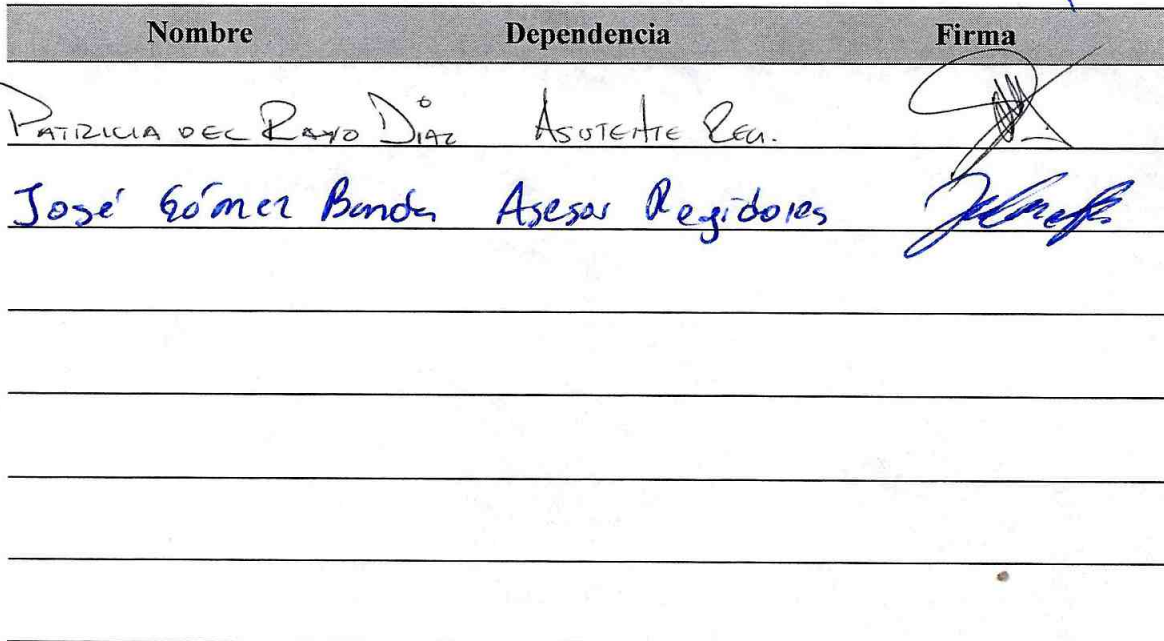 Nombre Dependencia Firma
PATRICIA DEL RAYO DIAZ ASISTENTE REG.
José Gómez Banda Asesor Regidores